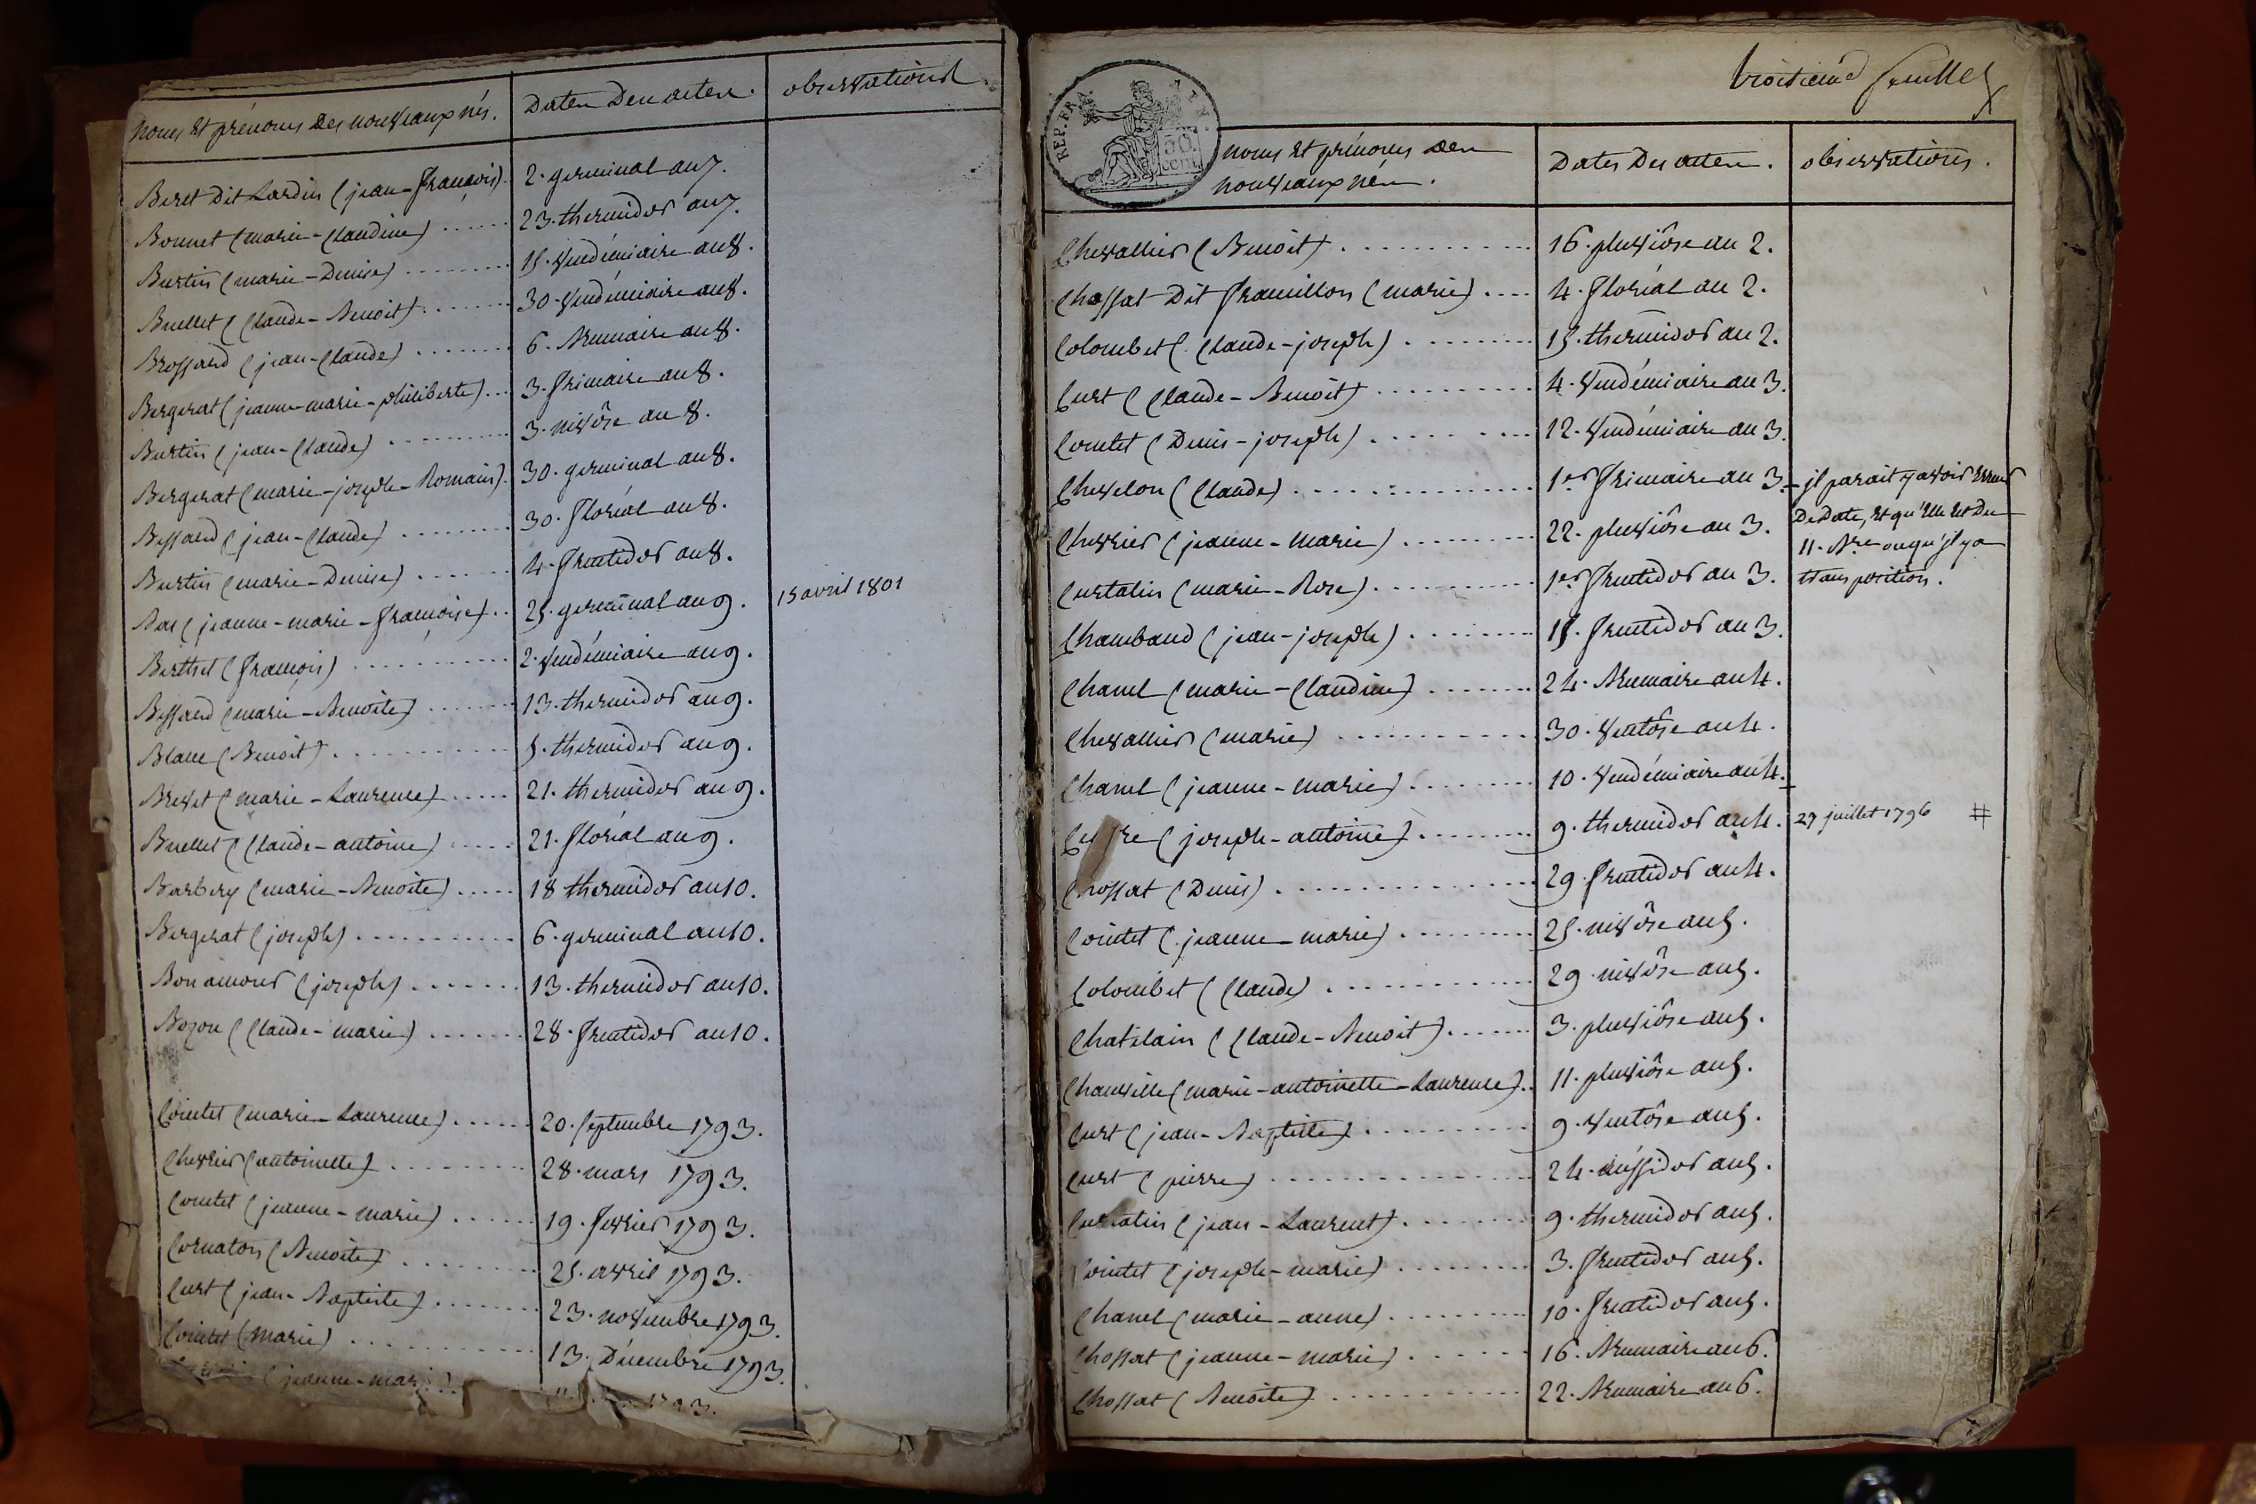 noms et prénoms des nouveaux nés. Dates des actes. observations
Beret dit Lardin (jean-françois). 2. germinal an 7.
Bonnet (marie-claudine) ..... 23. thermidor an 7.
Burtin (marie-Denise) ........ 15. vendémiaire an 8.
Buellet (claude-Benoit) ....... 30. vendémiaire an 8.
Brossard (jean-claude) ....... 6. Brumaire an 8.
Bergerat (jeanne-marie-philiberte) ... 3. frimaire an 8.
Burtin (jean-claude) .......... 3. nivôse an 8.
Bergerat (marie-joseph-Romain). 30. germinal an 8.
Bessard (jean-claude) ........ 30. floréal an 8.
Burtin (marie-Denise) ....... 4. fructidor an 8.
Bas (jeanne-marie-françoise) .. 25. germinal an 9. 15 avril 1801
Berthet (françois) ........... 2. vendémiaire an 9.
Bessard (marie-Benoite) ....... 13. thermidor an 9.
Blanc (Benoit) ............ 5. thermidor an 9.
Brevet (marie-Laurence) ..... 21. thermidor an 9.
Buellet (claude-antoine) ..... 21. floréal an 9.
Barbery (marie-Benoite) ..... 18 thermidor an 10.
Bergerat (joseph) ........... 6. germinal an 10.
Bon amour (joseph) ....... 13. thermidor an 10.
Bozon (claude-marie) ....... 28. fructidor an 10.
Cointet (marie-Laurence) ..... 20. septembre 1793.
Chevrier (antoinette) ......... 28. mars 1793.
Cointet (jeanne-marie) ..... 19. fevrier 1793.
Cornaton (Benoite) ......... 25. avril 1793.
Curt (jean-Baptiste) ....... 23. novembre 1793.
Cointet (marie) ........... 13. Décembre 1793.
(jeanne-mar 1793.
troisieme feuillet
REP. FRA.
50 cent.
noms et prénoms des
nouveaux nés. Dates des actes. observations.
Chevallier (Benoit) ............ 16. pluviôse an 2.
Chossat dit framillon (marie) .... 4. floréal an 2.
Colombet (claude-joseph) ......... 15. thermidor an 2.
Curt (claude-Benoit) ........... 4. vendémiaire an 3.
Cointet (Denis-joseph) ......... 12. vendémiaire an 3.
Chevelon (claude) ............. 1er frimaire an 3. - jl parait y avoir erreur
De Date, et qu'elle est du
Chevrier (jeanne-marie) ......... 22. pluviôse an 3. 11. Bre ou qu'jl y a
Curtalin (marie-Rose) .......... 1er fructidor an 3. transposition.
Chambaud (jean-joseph) ........ 15. fructidor an 3.
Chanel (marie-claudine) ....... 24. Brumaire an 4.
Chevallier (marie) ............ 30. ventôse an 4.
Chanel (jeanne-marie) ......... 10. vendémiaire an 4.
(joseph-antoine) ......... 9. thermidor an 4. 27 juillet 1796 #
Chossat (Denis) ............... 29. fructidor an 4.
Cointet (jeanne-marie) ......... 25. nivôse an 5.
Colombet (claude) ............ 29. nivôse an 5.
Chatelain (claude-Benoit) ....... 3. pluviôse an 5.
Chanville (marie-antoinette-Laurence) .. 11. pluviôse an 5.
Curt (jean-Baptiste) .......... 9. ventôse an 5.
Curt (pierre) ............... 24. méssidor an 5.
Curtalin (jean-Laurent) ........ 9. thermidor an 5.
Cointet (joseph-marie) ......... 3. fructidor an 5.
Chanel (marie-anne) .......... 10. fructidor an 5.
Chossat (jeanne-marie) ....... 16. Brumaire an 6.
Chossat (Benoite) ............ 22. Brumaire an 6.